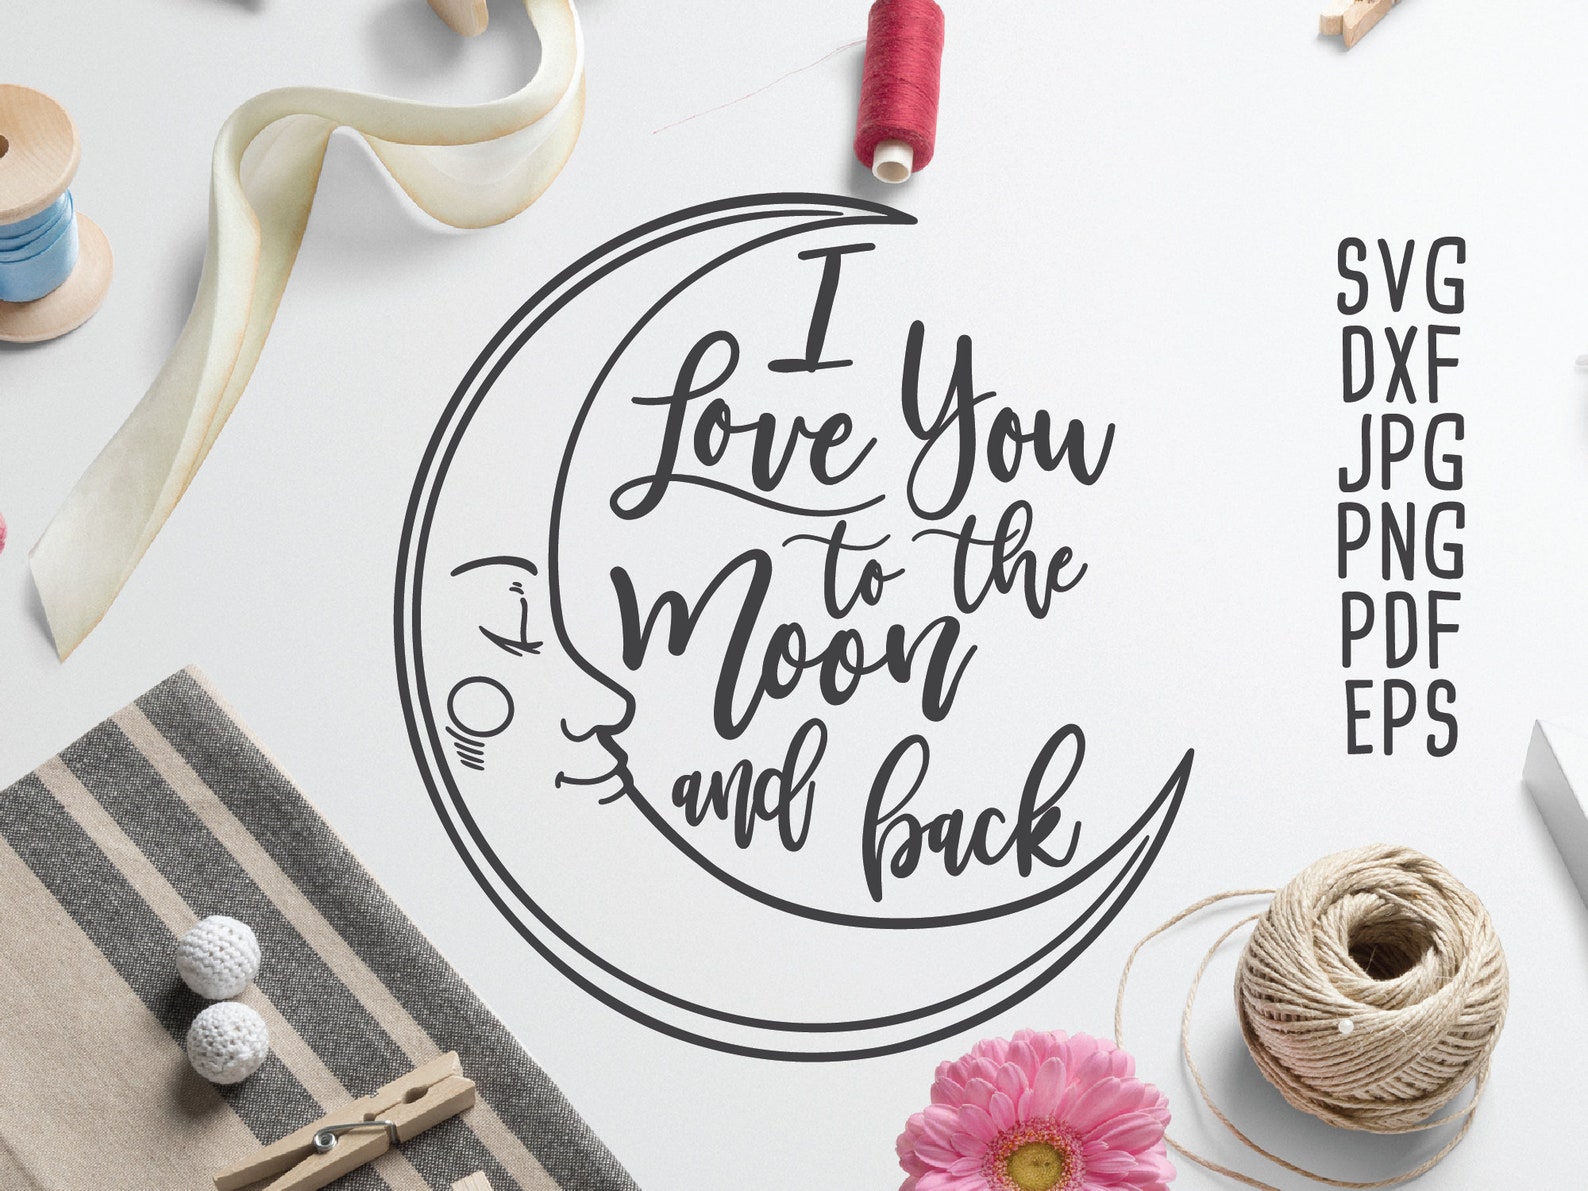 I
Love You
to the
Moon
and back
SVG
DXF
JPG
PNG
PDF
EPS